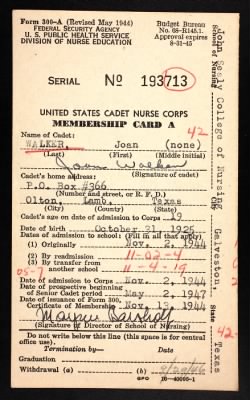 Form 300-A (Revised May 1944)
FEDERAL SECURITY AGENCY
U. S. PUBLIC HEALTH SERVICE
DIVISION OF NURSE EDUCATION
Budget Bureau
No. 68-R145.1.
Approval expires
8-31-45
SERIAL No 193713
UNITED STATES CADET NURSE CORPS
MEMBERSHIP CARD A
42
Name of Cadet:
WALKER, Joan (none)
(Last) (First) (Middle initial)
Joan Walker
(Signature of cadet)
Cadet's home address:
P.O. Box #366
(Number and street, or R. F. D.)
Olton, Lamb, Texas
(City) (County) (State)
Cadet's age on date of admission to Corps 19
Date of birth October 31 1925
Dates of admission to school: (Fill in all that apply)
(1) Originally Nov. 2, 1944
(2) By readmission 11-02-4
(3) By transfer from
another school 11-4-19
05-7
Date of admission to Corps Nov. 2, 1944
Date of prospective beginning
of Senior Cadet period May 2, 1947
Date of issuance of Form 300,
Certificate of Membership Nov. 13, 1944
(Signature of Director of School of Nursing)
Do not write below this line (this space is for central
office use).
Termination by— Date
Graduation
Withdrawal
GPO 16-40095-1
John Sealy College of Nursing Galveston, Texas
School of Nursing
State
42